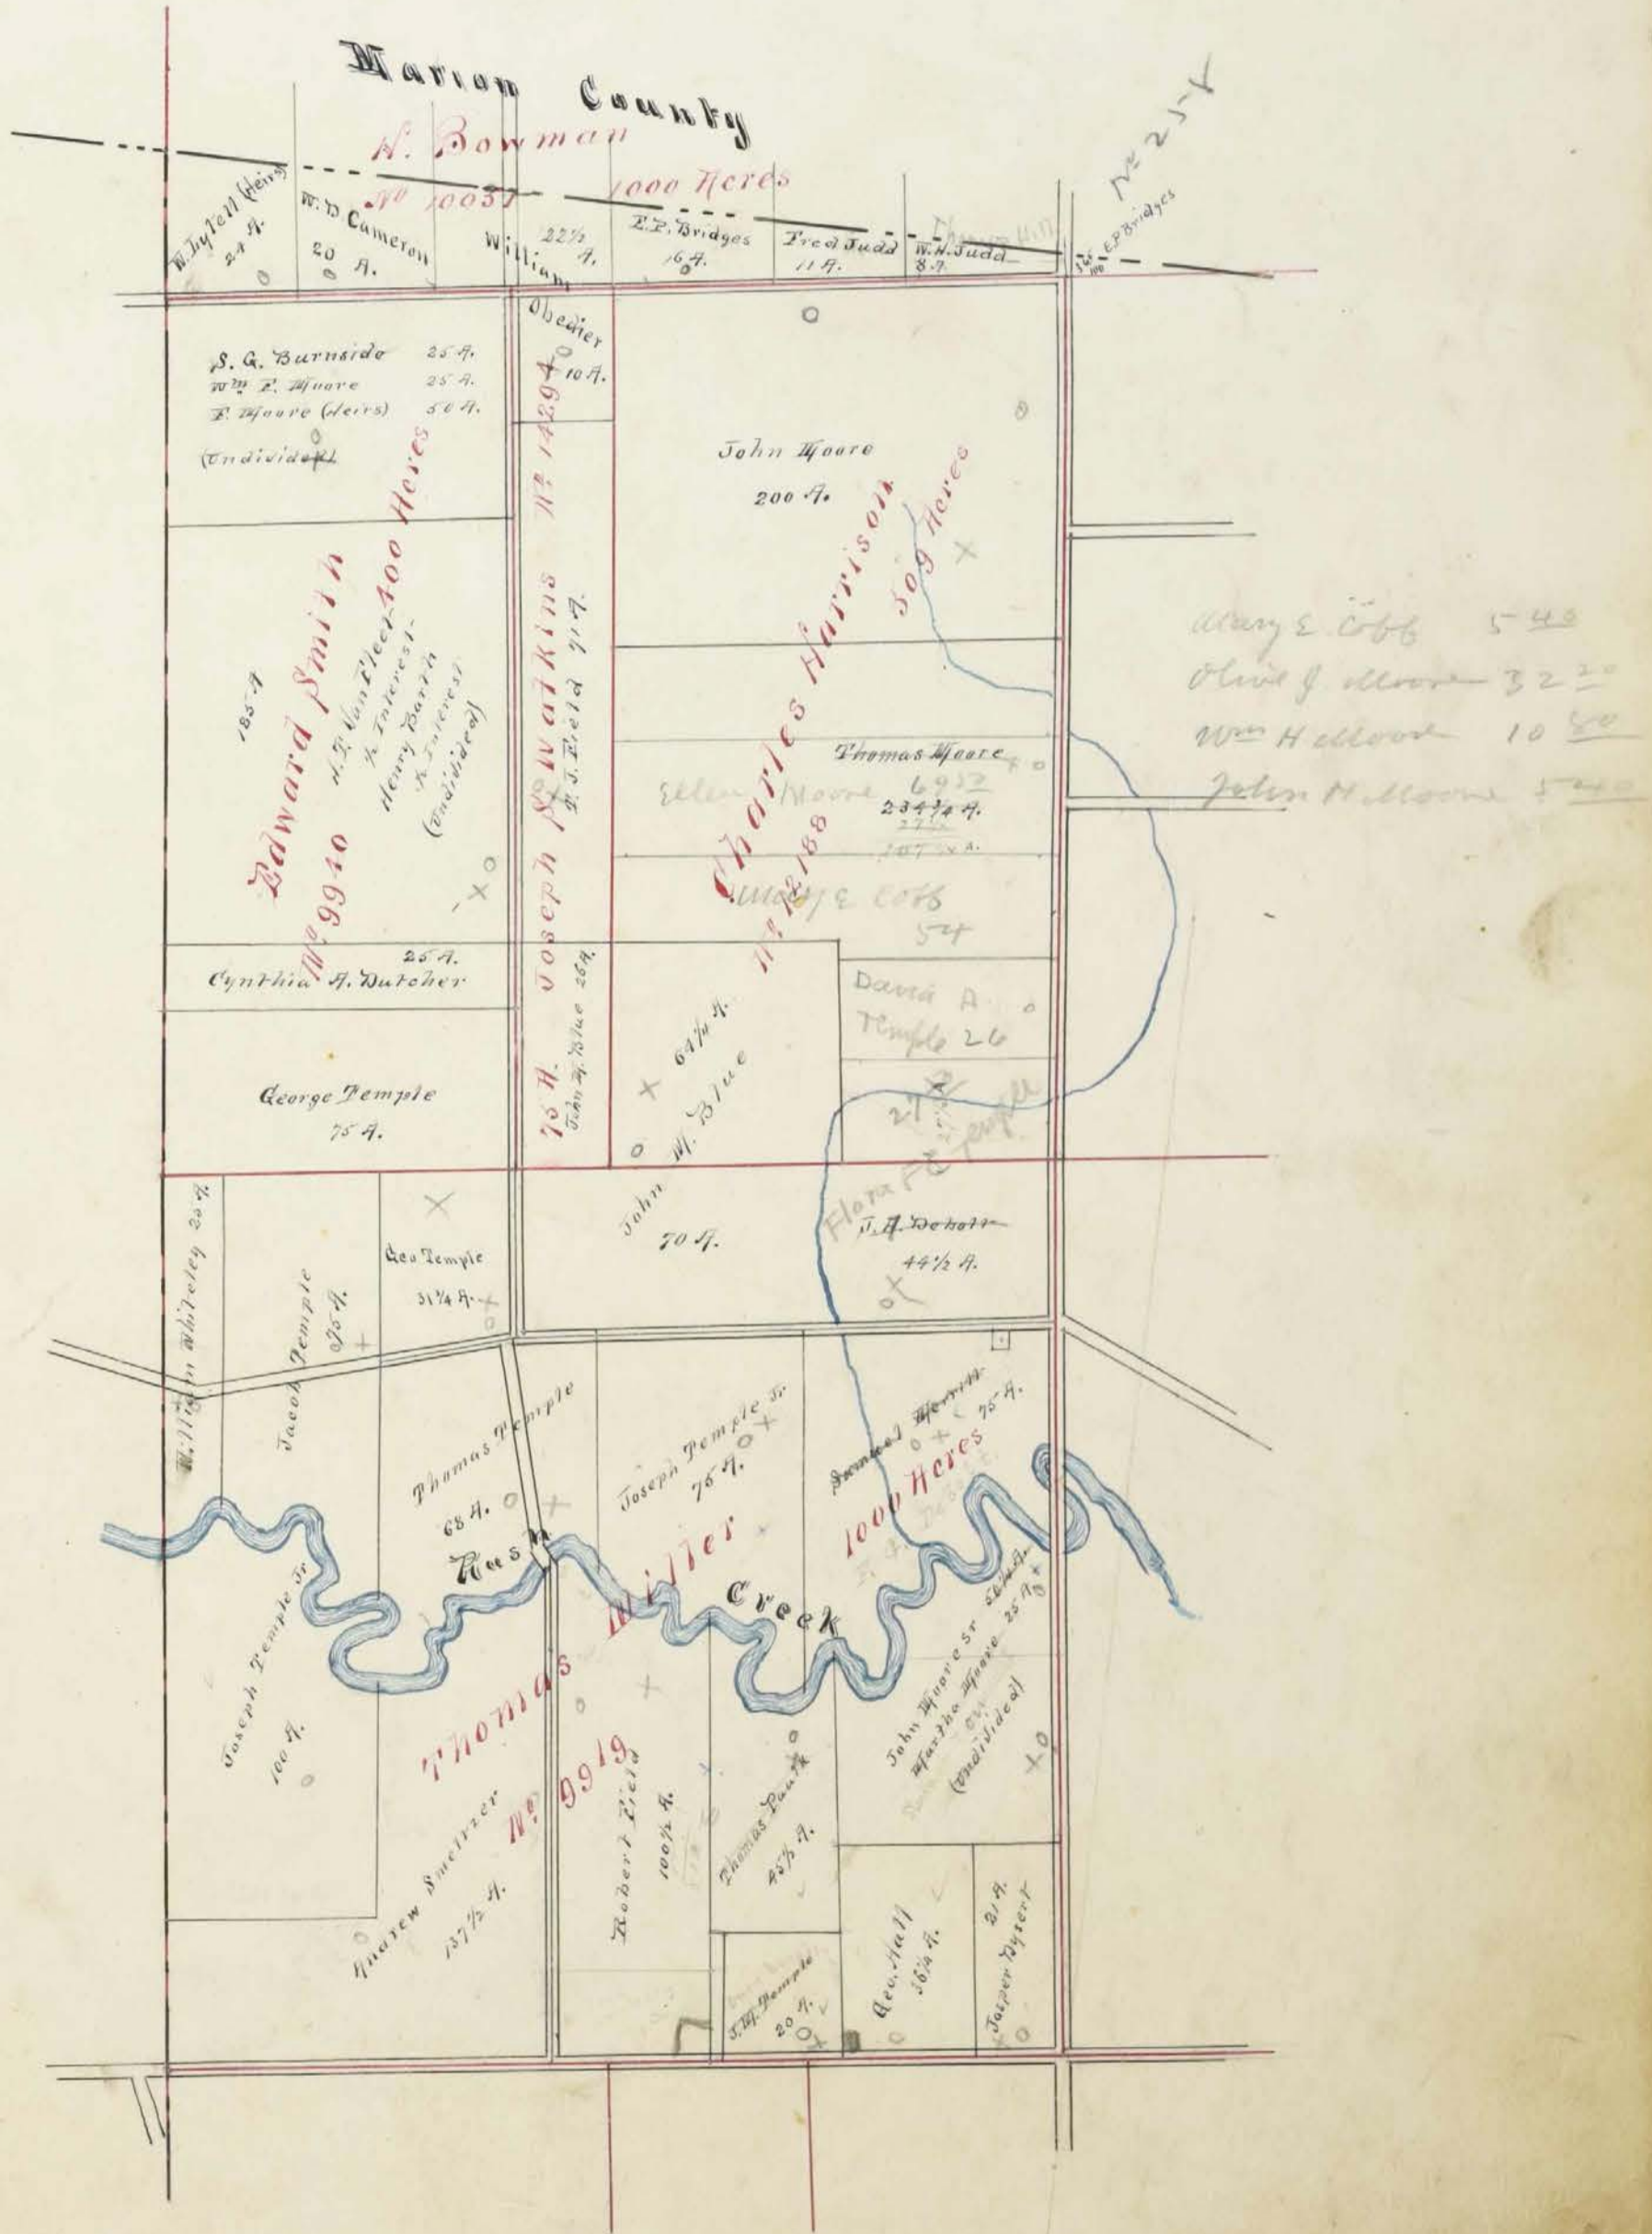 Marion County
N. Bowman
No 10037 1000 Acres
No 254
W. Lytell (Heirs)
24 A.
W. D. Cameron
20 A.
William Obedier
22½ A.
10 A.
E. P. Bridges
16 A.
Fred Judd
11 A.
W. H. Judd
8 A.
E P Bridges
S. G. Burnside 25 A.
Wm E. Moore 25 A.
F. Moore (Heirs) 50 A.
(Undivided)
Edward Smith
No 9940 400 Acres
185 A
H. P. Van Fleet
½ Interest
Henry Barth
½ Interest
(Undivided)
Joseph S. Watkins No 14294
75 A.
F. J. Field 41 A.
John M. Blue 26 A.
John Moore
200 A.
Charles Harrison
No 12188 509 Acres
Thomas Moore
234¾ A.
Ellen Moore
Mary E Cobb
54
Mary E Cobb 5 40
Olive J Moore 32 20
Wm H Moore 10 80
John H Moore 5 40
Cynthia A. Dutcher
25 A.
George Temple
75 A.
David A.
Temple 26
Flora F E Temple
27
64¼ A.
John M. Blue
70 A.
J. A. Dehott
44½ A.
William Whiteley 25 A.
Jacob Temple
75 A.
Geo Temple
31¼ A.
Thomas Temple
68 A.
Joseph Temple Jr.
75 A.
Samuel Morris
75 A.
Rush Creek
Thomas Miller
No 9919 1000 Acres
Joseph Temple Jr
100 A.
Andrew Smeltzer
137½ A.
Robert Field
100½ A.
Thomas Pauth
45½ A.
John Moore Sr
Martha Moore 25 A
(Undivided)
J. M. Temple
20 A.
Geo. Hall
36¼ A.
Jasper Dysert
21 A.